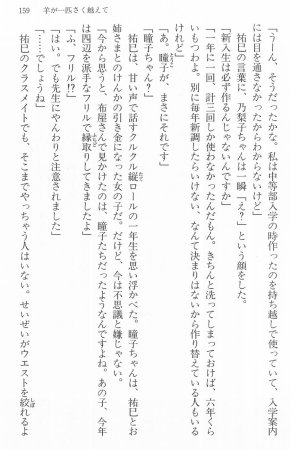 159　羊が一匹さく越えて
「うーん、そうだったかな。私は中等部入学の時作ったのを持ち越しで使っていて、入学案内
には目を通さなかったからわからないけど」
祐巳の言葉に、乃梨子ちゃんは一瞬「え?」という顔をした。
「新入生は必ず作るんじゃないんですか」
「一年に一回、計三回しか使わなかったんだもん。きちんと洗ってしまっておけば、六年くら
いもつわよ。別に毎年新調したらいけない、なんて決まりはないから作り替えている人もいる
けれど」
「あ。瞳子が、まさにそれです」
「瞳子ちゃん?」
祐巳は、甘い声で話すクルクル縦ロールの一年生を思い浮かべた。瞳子ちゃんは、祐巳とお
姉さまとのけんかの引き金になった女の子だ。だけど、今は不思議と嫌じゃない。
「今から思うと、布屋さんで見かけたのは、瞳子たちだったようなんですよね。あの子、今年
は四辺を派手なフリルで縁取りしてきましたよ」
「ふ、フリル!?」
「はい。でも先生にやんわりと注意されました」
「……でしょうね」
祐巳のクラスメイトでも、そこまでやっちゃう人はいない。せいぜいがウエストを絞れるよ